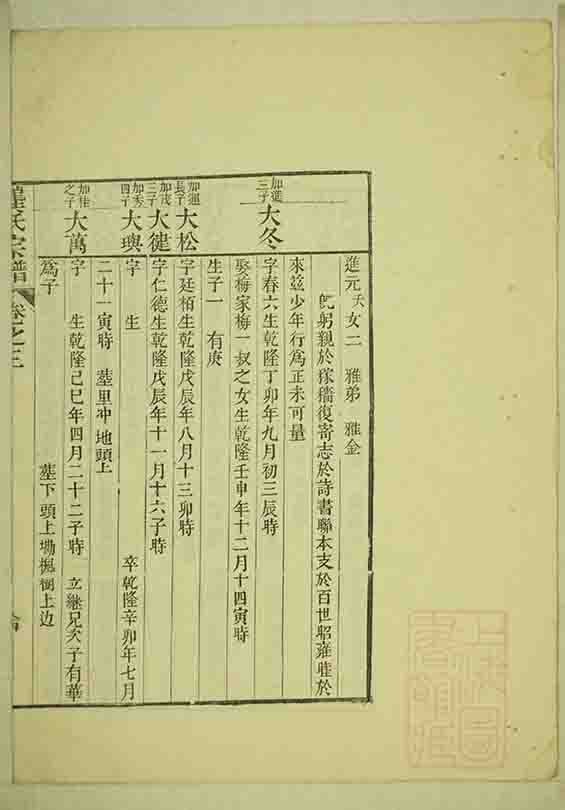 進元夭 女二 雅弟 雅金
既躬親於稼穡復寄志於詩書聯本支於百世昭雍睦於
來玆少年行為正未可量
加進三子 大冬 字春六生乾隆丁卯年九月初三辰時
娶梅家梅一叔之女生乾隆壬申年十二月十四寅時
生子一 有庚
加運長子 大松 字廷栢生乾隆戊辰年八月十三卯時
加茂三子 大徤 字仁德生乾隆戊辰年十一月十六子時
加秀四子 大璵 字 生 卒乾隆辛卯年七月
二十一寅時 墓里冲地頭上
加桂之子 大萬 字 生乾隆己巳年四月二十二子時 立継兄次子有華
為子 墓下頭上坳 上边
氏宗譜 卷之三
上海圖書館藏